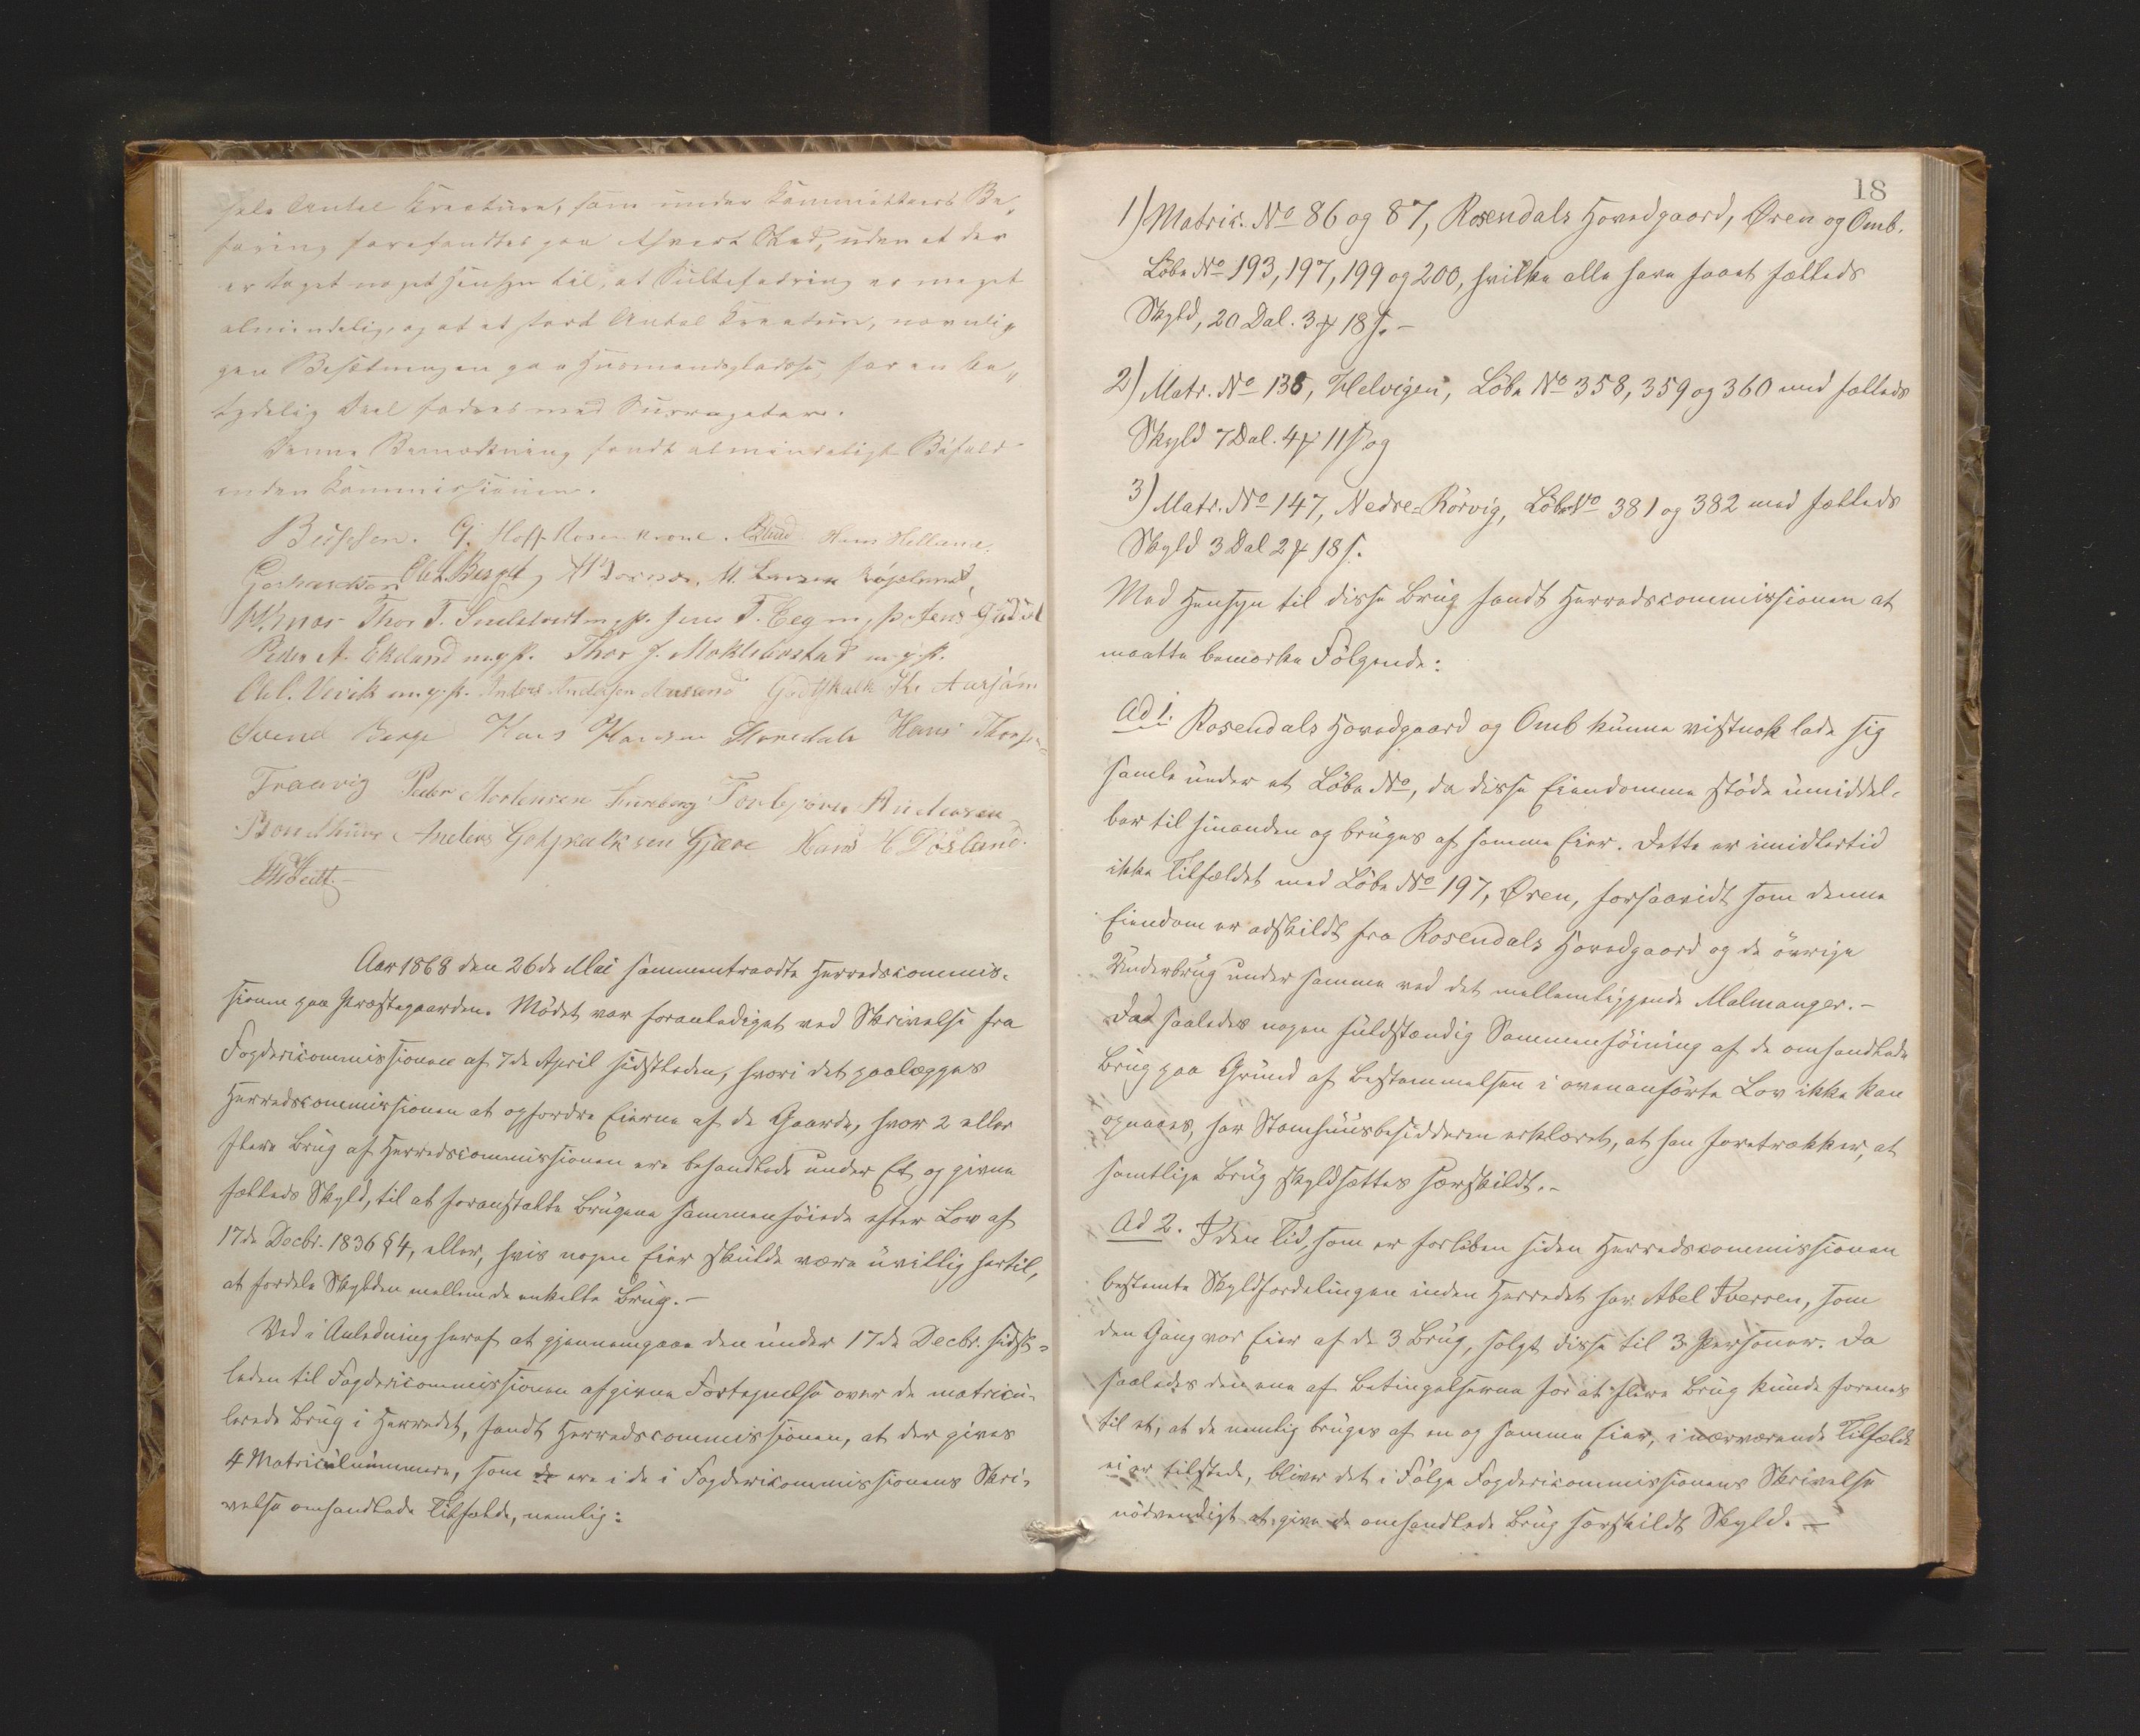 hele Antal Kreature, som under Kommitteens Be-
faring forefandtes paa ethvert Sted, uden at der
er taget noget Hensyn til, at Sultefodring er meget
almindelig, og at et stort Antal Kreature, navnlig
gen Besætningen paa Husmandspladse, for en be-
tydelig Deel fodres med Surrogater.
Denne Bemærkning fandt almindeligt Bifald
inden Kommissionen.
G. Hoff Rosenkrone. Hans Helland.
Gerhardsen Ole L. Berget M. Larsen
Thor T. m.p.P. Jens T. Eeg m.p.P. Jens
Peder A. Ekeland m.p.P. Thor J. Moklebustad m.p.P.
Ole L. Vevik m.p.P. Anders Andersen Gotskalk
Svend Berge Hans Hansen Hans Thorsen
Traavig Peder Mortensen Torbjørn Andersen
Bondhuus Anders Gotskalksen Gjære Hans H Døsland.
Aar 1868 den 26de Mai sammentraadte Herredscommis-
sionen paa Præstegaarden. Mødet var foranlediget ved Skrivelse fra
Fogdericommissionen af 7de April sidstleden, hvori det paalægges
Herredscommissionen at opfordre Eierne af de Gaarde, hvor 2 eller
flere Brug af Herredscommissionen ere behandlede under Et og givne
fælleds Skyld, til at foranstalte Brugene sammenføiede efter Lov af
17de Decbr. 1836 § 4, eller, hvis nogen Eier skulde være uvillig hertil,
at fordele Skylden mellem de enkelte Brug.-
Ved i Anledning heraf at gjennemgaae den under 17de Decbr. sidst-
leden til Fogdericommissionen afgivne Fortegnelse over de matricu-
lerede Brug i Herredet, fandt Herredscommissionen, at der gives
4 Matriculnummere, som de ere i de i Fogdericommissionens Skri-
velse omhandlede Tilfælde, nemlig:
18
1) Matric. No 86 og 87, Rosendals Hovedgaard, Øren og Omb.
Løbe No 193, 197, 199 og 200, hvilke alle have faaet fælleds
Skyld, 20 Dal. 3 ₰ 18 ſ. -
2) Matr. No 138, Helvigen, Løbe No 358, 359 og 360 med fælleds
Skyld 7 Dal. 4 ₰ 11 ſ og
3) Matr. No 147, Nedre-Rörvig, Løbe No 381 og 382 med fælleds
Skyld 3 Dal 2 ₰ 18 ſ.
Med Hensyn til disse Brug fandt Herredscommissionen at
maatte bemærke Følgende:
Ad 1. Rosendals Hovedgaard og Omb kunne vistnok lade sig
samle under et Løbe No, da disse Eiendomme støde umiddel-
bar til hinanden og bruges af samme Eier. Dette er imidlertid
ikke Tilfældet med Løbe No 197, Øren, forsaavidt som denne
Eiendom er adskildt fra Rosendals Hovedgaard og de øvrige
Underbrug under samme ved det mellemliggende Malmanger. -
Da saaledes nogen fuldstændig Sammenføining af de omhandlede
Brug paa Grund af Bestemmelsen i ovenanførte Lov ikke kan
opnaaes, har Stamhuusbesidderen erklæret, at han foretrækker, at
samtlige Brug skyldsættes særskildt. -
Ad 2. I den Tid, som er forløben siden Herredscommissionen
bestemte Skyldfordelingen inden Herredet har Abel Iversen, som
den Gang var Eier af de 3 Brug, solgt disse til 3 Personer. Da
saaledes den ene af Betingelserne for at flere Brug kunde forenes
til et, at de nemlig bruges af en og samme Eier, i nærværende Tilfælde
ei er tilstede, bliver det i Følge Fogdericommissionens Skrivelse
nødvendigt at give de omhandlede Brug særskildt Skyld. -